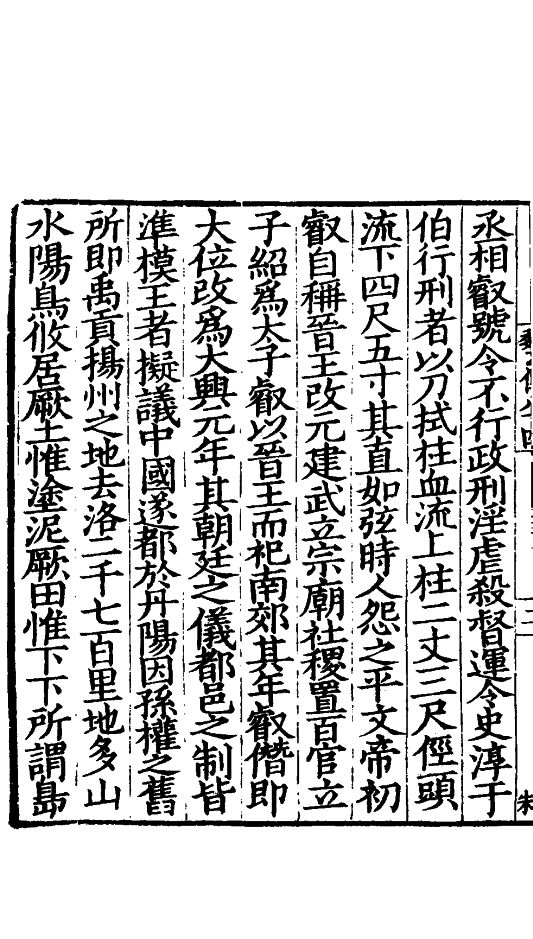 丞相叡號令不行政刑淫虐殺督運令史淳于
伯行刑者以刀拭柱血流上柱二丈三尺俓頭
流下四尺五寸其直如弦時人怨之平文帝初
叡自稱晉王改元建武立宗廟社稷置百官立
子紹爲太子叡以晉王而祀南郊其年叡僭即
大位改爲大興元年其朝廷之儀都邑之制皆
準模王者擬議中國遂都於丹陽因孫權之舊
所即禹貢揚州之地去洛二千七百里地多山
水陽鳥攸居厥土惟塗泥厥田惟下下所謂島